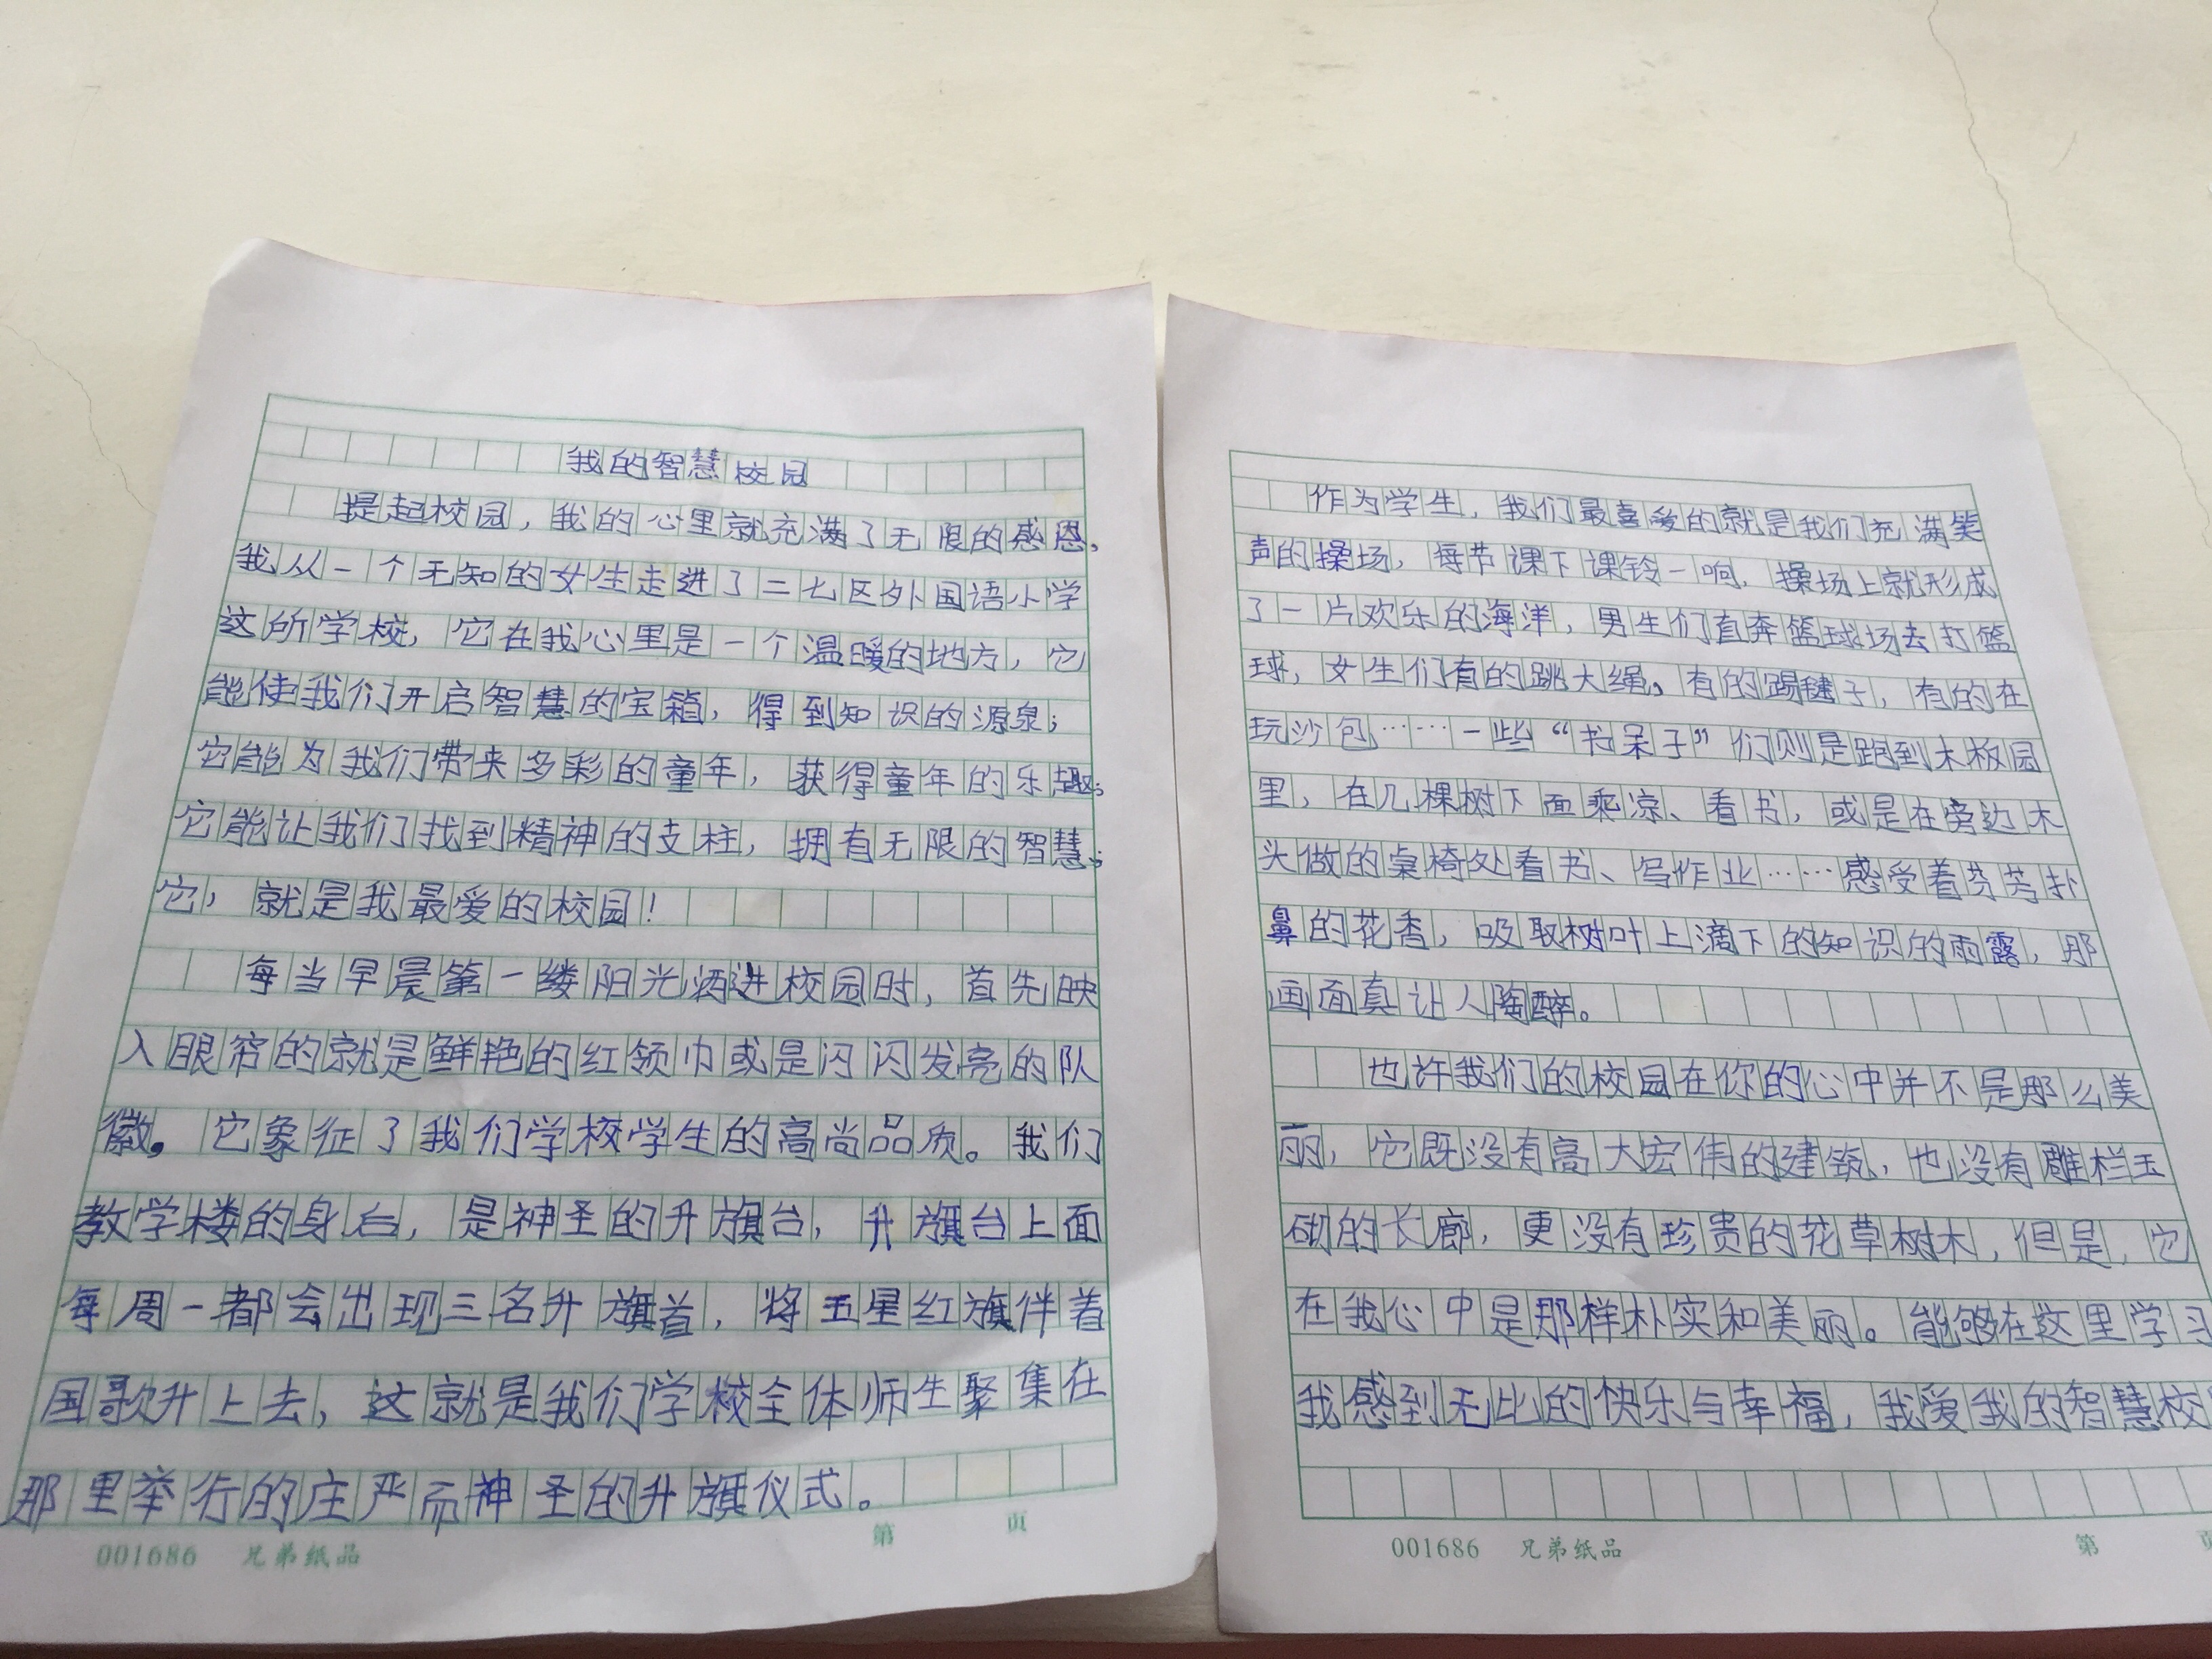 我的智慧校园
提起校园，我的心里就充满了无限的感恩，
我从一个无知的女生走进了二七区外国语小学
这所学校，它在我心里是一个温暖的地方，它
能使我们开启智慧的宝箱，得到知识的源泉；
它能为我们带来多彩的童年，获得童年的乐趣；
它能让我们找到精神的支柱，拥有无限的智慧；
它，就是我最爱的校园！
每当早晨第一缕阳光洒进校园时，首先映
入眼帘的就是鲜艳的红领巾或是闪闪发亮的队
徽。它象征了我们学校学生的高尚品质。我们
教学楼的身后，是神圣的升旗台，升旗台上面
每周一都会出现三名升旗首，将五星红旗伴着
国歌升上去，这就是我们学校全体师生聚集在
那里举行的庄严而神圣的升旗仪式。
001686 兄弟纸品 第 页
作为学生，我们最喜爱的就是我们充满笑
声的操场，每节课下课铃一响，操场上就形成
了一片欢乐的海洋，男生们直奔篮球场去打篮
球，女生们有的跳大绳，有的踢毽子，有的在
玩沙包……一些“书呆子”们则是跑到木板园
里，在几棵树下面乘凉、看书，或是在旁边木
头做的桌椅处看书、写作业……感受着芬芳扑
鼻的花香，吸取树叶上滴下的知识的雨露，那
画面真让人陶醉。
也许我们的校园在你的心中并不是那么美
丽，它既没有高大宏伟的建筑，也没有雕栏玉
砌的长廊，更没有珍贵的花草树木，但是，它
在我心中是那样朴实和美丽。能够在这里学习
我感到无比的快乐与幸福，我爱我的智慧校
001686 兄弟纸品 第 页